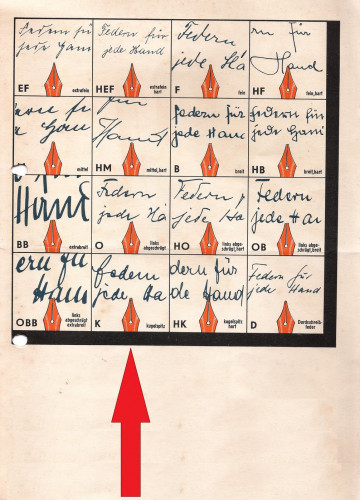 Federn für
jede Hand
EF
extrafein
Federn für
jede Hand
HEF
extrafein
hart
Federn
jede Ha
F
fein
rn für
Hand
HF
fein, hart
Han
mittel
für
Hand
HM
mittel, hart
federn für
jede Hand
B
breit
federn für
jede Hand
HB
breit, hart
Hand
BB
extrabreit
Federn
jede Ha
O
links
abgeschrägt
Federn
jede Ha
HO
links abge-
schrägt, hart
Federn
jede Ha
OB
links abge-
schrägt, breit
ern fü
Han
OBB
links
abgeschrägt
extrabreit
federn
jede Ha
K
kugelspitz
dern für
de Hand
HK
kugelspitz
hart
Federn für
jede Hand
D
Durchschreib-
feder